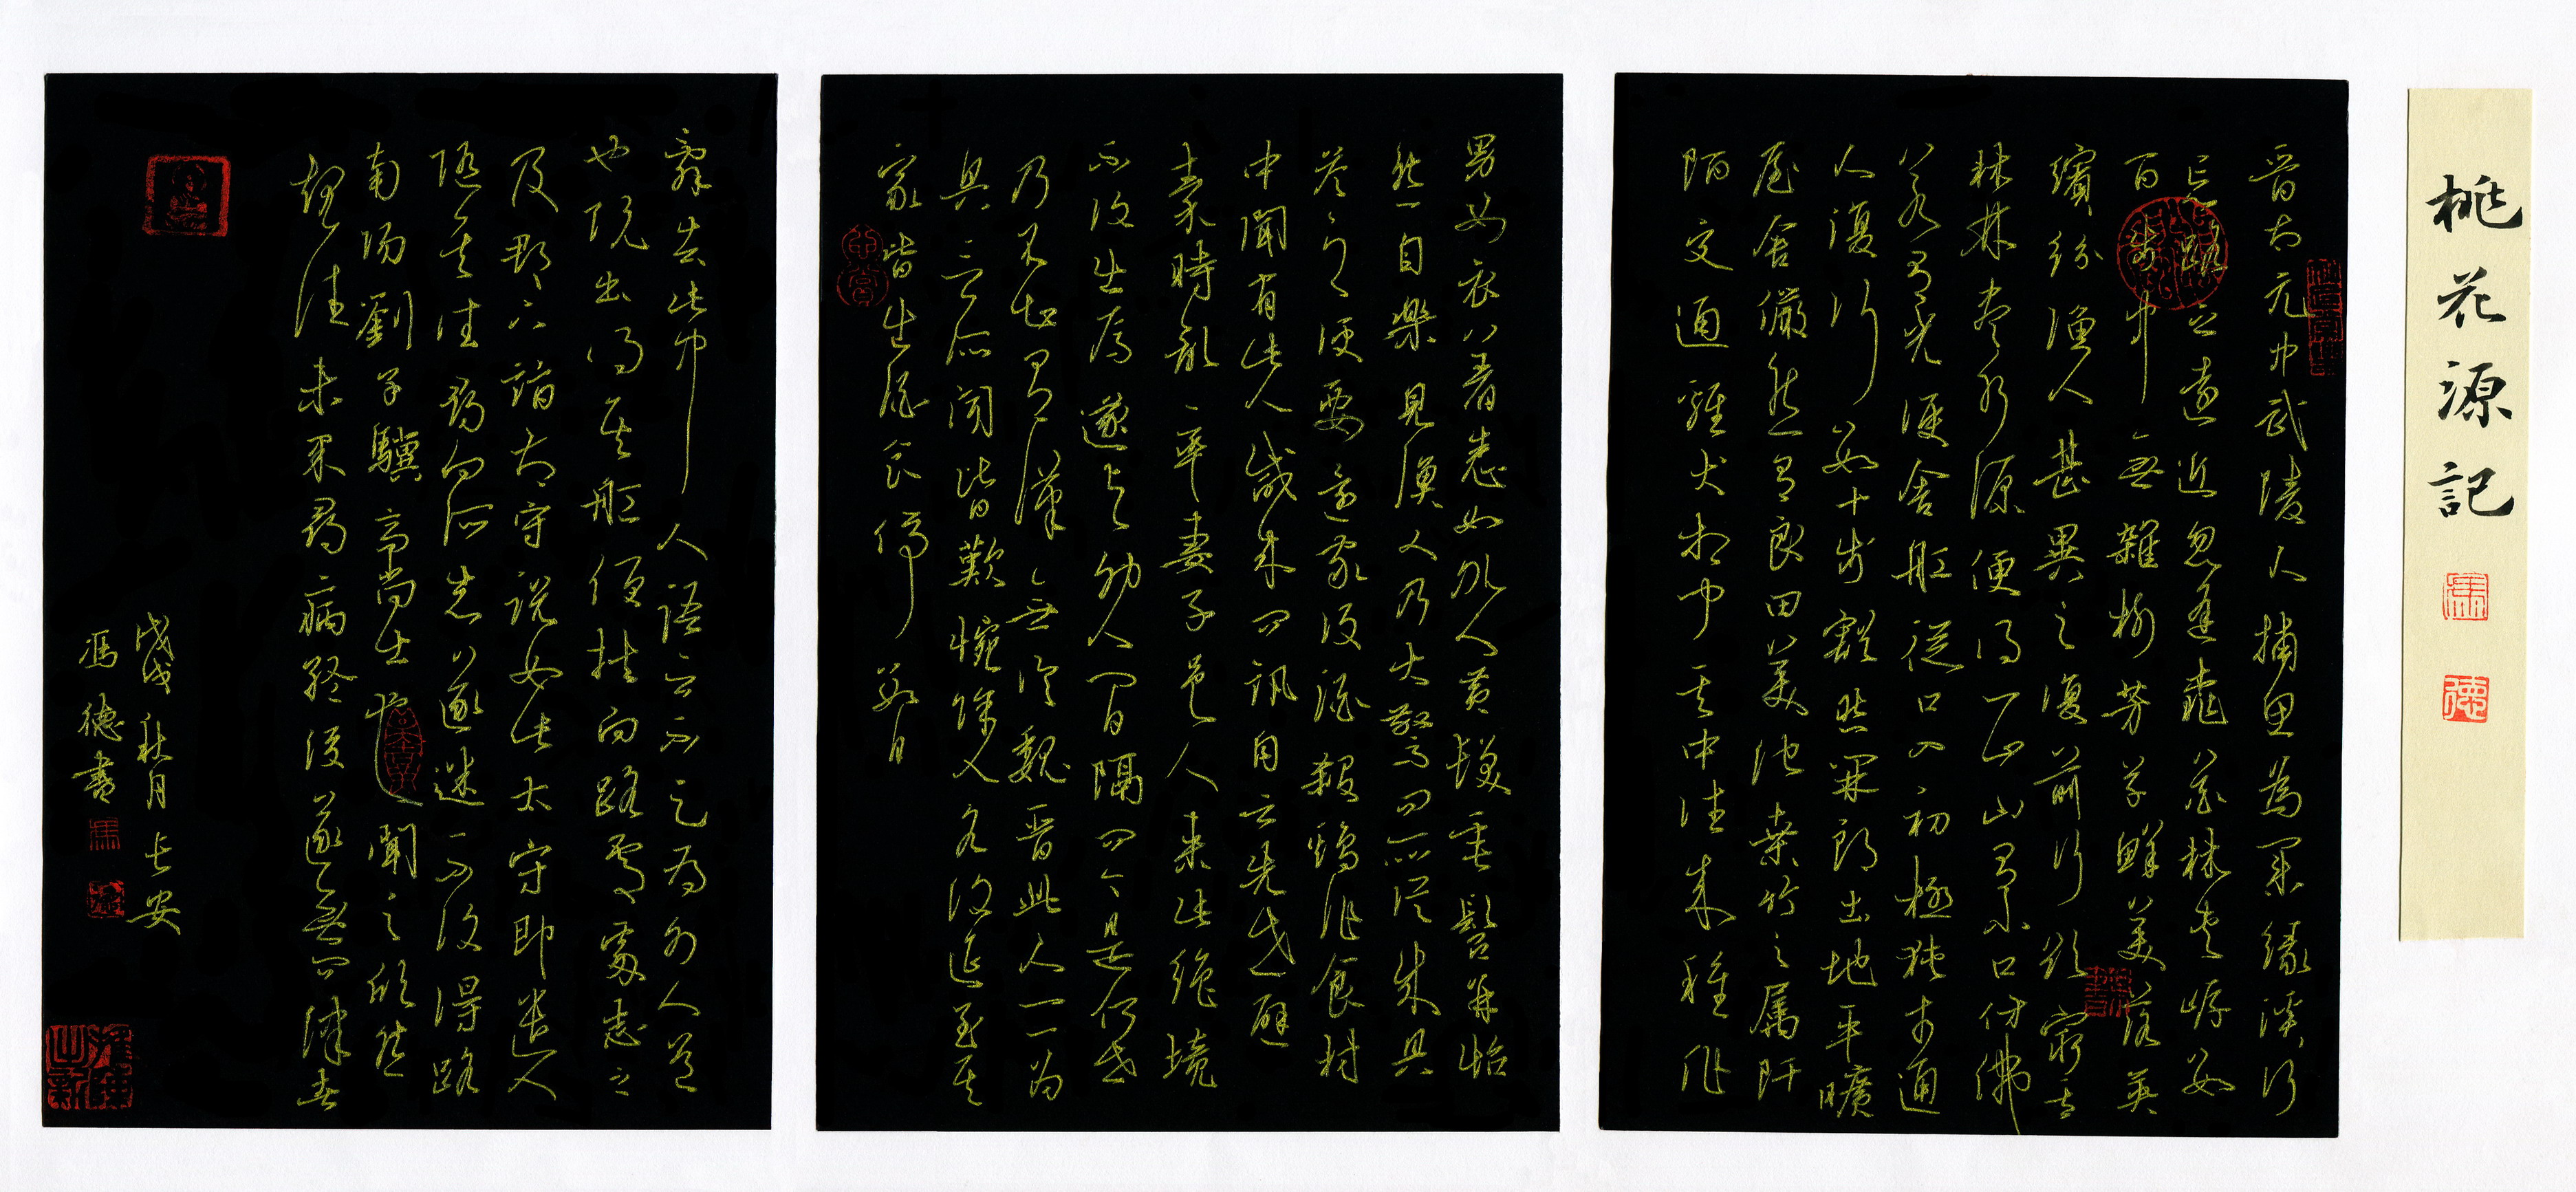 桃花源記
晉太元中武陵人捕魚為業緣溪行
忘路之遠近忽逢桃花林夾岸數
百步中無雜樹芳草鮮美落英
繽紛漁人甚異之復前行欲窮其
林林盡水源便得一山山有小口仿佛
若有光便舍船從口入初極狹才通
人復行數十步豁然開朗土地平曠
屋舍儼然有良田美池桑竹之屬阡
陌交通雞犬相聞其中往來種作
男女衣著悉如外人黃髮垂髫并怡
然自樂見漁人乃大驚問所從來具
答之便要還家設酒殺鷄作食村
中聞有此人咸來問訊自云先世避
秦時亂率妻子邑人來此絕境
不復出焉遂與外人間隔問今是何世
乃不知有漢無論魏晉此人一一為
具言所聞皆歎惋餘人各復延至其
家皆出酒食停數日
辭去此中人語云不足為外人道
也既出得其船便扶向路處處志之
及郡下詣太守說如此太守即遣人
隨其往尋向所志遂迷不復得路
南陽劉子驥高尚士也聞之欣然
規往未果尋病終後遂無問津者
戊戌秋月長安
馮德書